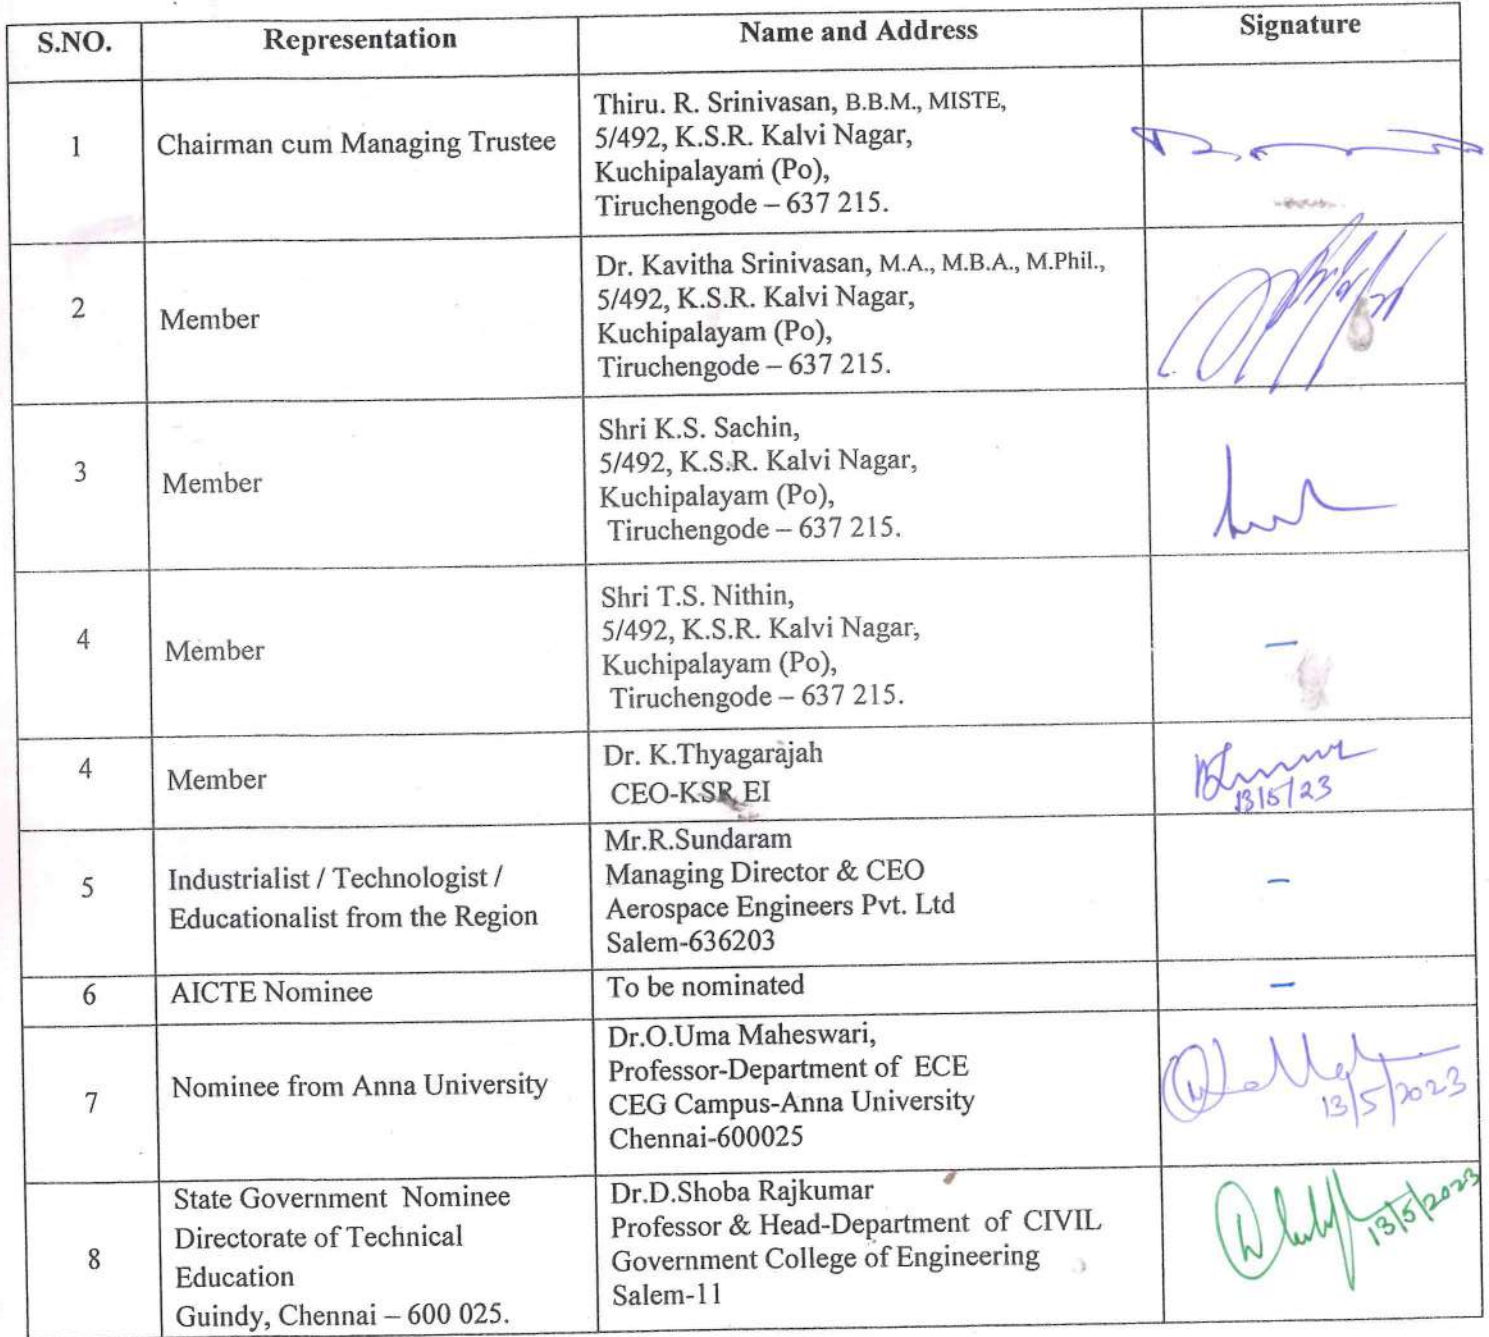 S.NO. Representation Name and Address Signature
1 Chairman cum Managing Trustee
Thiru. R. Srinivasan, B.B.M., MISTE,
5/492, K.S.R. Kalvi Nagar,
Kuchipalayam (Po),
Tiruchengode – 637 215.
2 Member
Dr. Kavitha Srinivasan, M.A., M.B.A., M.Phil.,
5/492, K.S.R. Kalvi Nagar,
Kuchipalayam (Po),
Tiruchengode – 637 215.
3 Member
Shri K.S. Sachin,
5/492, K.S.R. Kalvi Nagar,
Kuchipalayam (Po),
Tiruchengode – 637 215.
4 Member
Shri T.S. Nithin,
5/492, K.S.R. Kalvi Nagar,
Kuchipalayam (Po),
Tiruchengode – 637 215.
–
4 Member
Dr. K.Thyagarajah
CEO-KSR EI
13/5/23
5
Industrialist / Technologist /
Educationalist from the Region
Mr.R.Sundaram
Managing Director & CEO
Aerospace Engineers Pvt. Ltd
Salem-636203
–
6 AICTE Nominee To be nominated –
7 Nominee from Anna University
Dr.O.Uma Maheswari,
Professor-Department of ECE
CEG Campus-Anna University
Chennai-600025
13/5/2023
8
State Government Nominee
Directorate of Technical
Education
Guindy, Chennai – 600 025.
Dr.D.Shoba Rajkumar
Professor & Head-Department of CIVIL
Government College of Engineering
Salem-11
13/5/2023